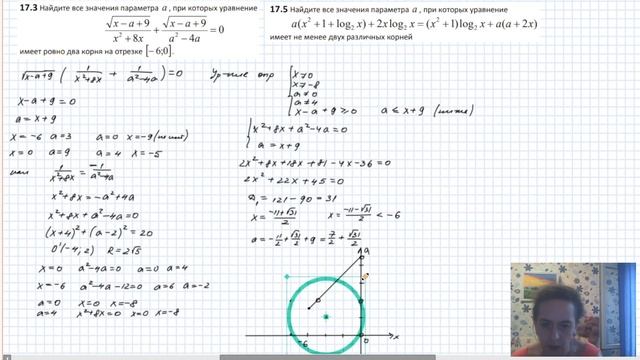 17.3 Найдите все значения параметра a , при которых уравнение
√(x−a+9)/(x²+8x) + √(x−a+9)/(a²−4a) = 0
имеет ровно два корня на отрезке [−6;0].
17.5 Найдите все значения параметра a , при которых уравнение
a(x²+1+log₂x)+2x log₂x=(x²+1)log₂x+a(a+2x)
имеет не менее двух различных корней
√(x−a+9) ( 1/(x²+8x) + 1/(a²−4a) ) = 0
x−a+9=0
a = x+9
x=−6 a=3 a=0 x=−9
x=0 a=9 a=4 x=−5
или 1/(x²+8x) = −1/(a²−4a)
x²+8x = −a²+4a
x²+8x+a²−4a=0
(x+4)²+(a−2)²=20
O'(−4; 2) R=2√5
x=0 a²−4a=0 a=0 a=4
x=−6 a²−4a−12=0 a=6 a=−2
a=0 x=0 x=−8
a=4 x²+8x=0 x=0 x=−8
x≠0
x≠−8
a≠0
a≠4
x−a+9≥0 a≤x+9 (ниже)
x²+8x+a²−4a=0
a=x+9
2x²+8x+18x+81−4x−36=0
2x²+22x+45=0
D₁=121−90=31
x=(−11+√31)/2 x=(−11−√31)/2 <−6
a=−11/2+√31/2+9=7/2+√31/2
a
−6
0
x